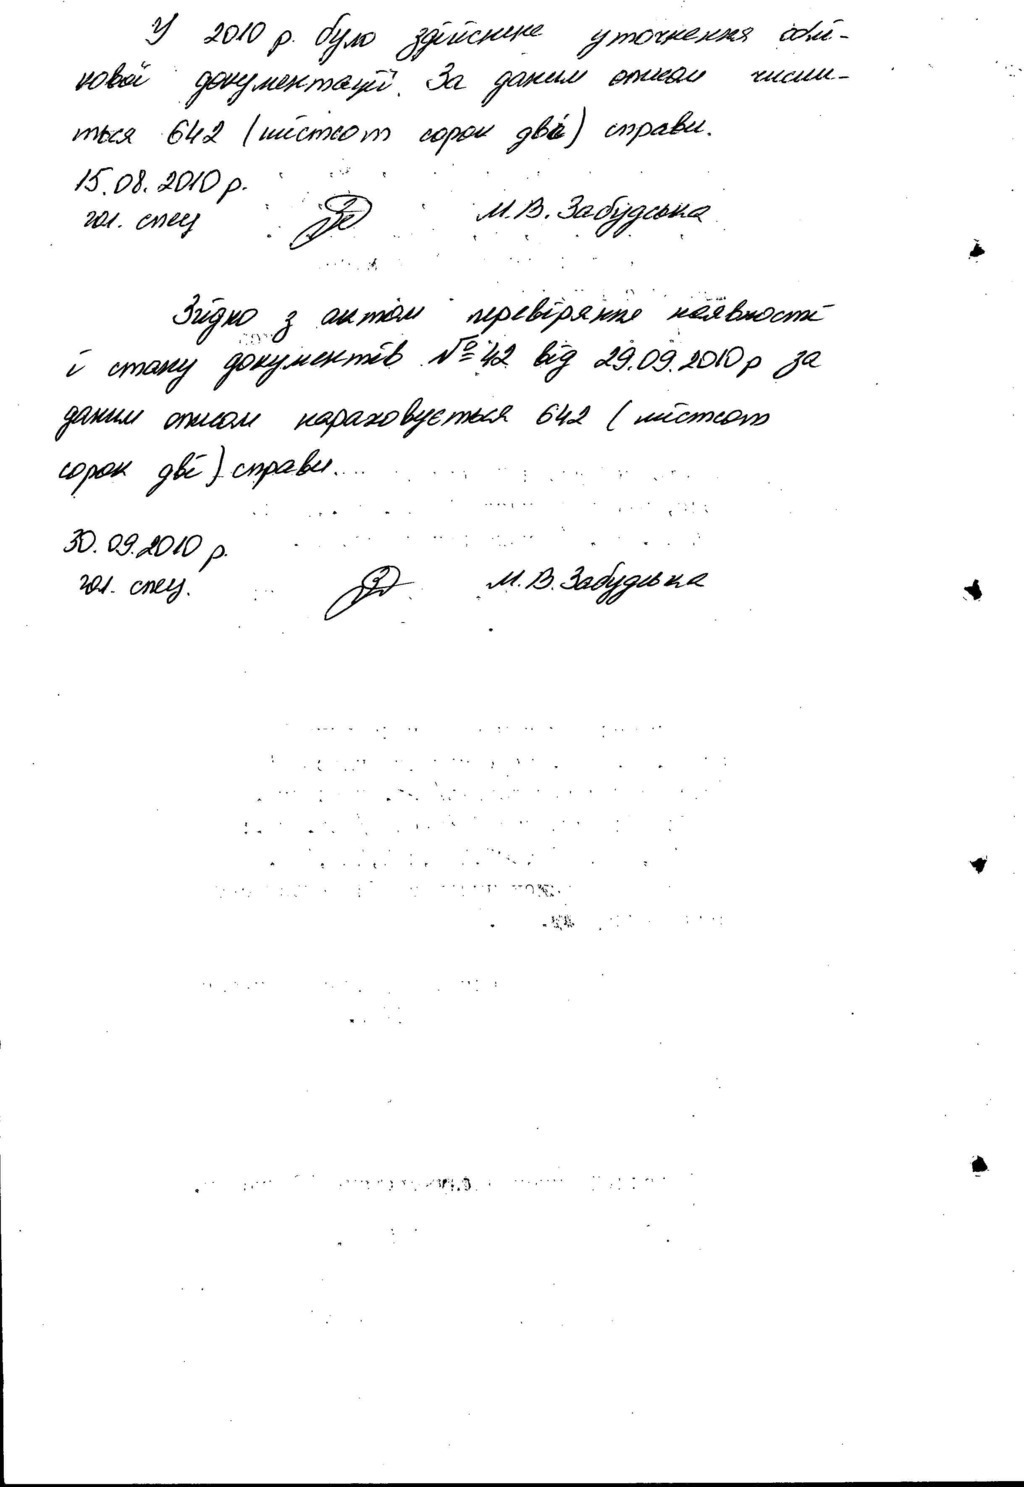 У 2010 р. було здійснене уточнення облі-
кової документації. За даним описом числи-
ться 642 (шістсот сорок дві) справи.
15.08.2010 р.
гол. спец М.В. Забудська
Згідно з актом перевіряння наявності
і стану документів № 42 від 29.09.2010 р за
даним описом нараховується 642 (шістсот
сорок дві) справи.
30.09.2010 р.
гол. спец. М.В. Забудська